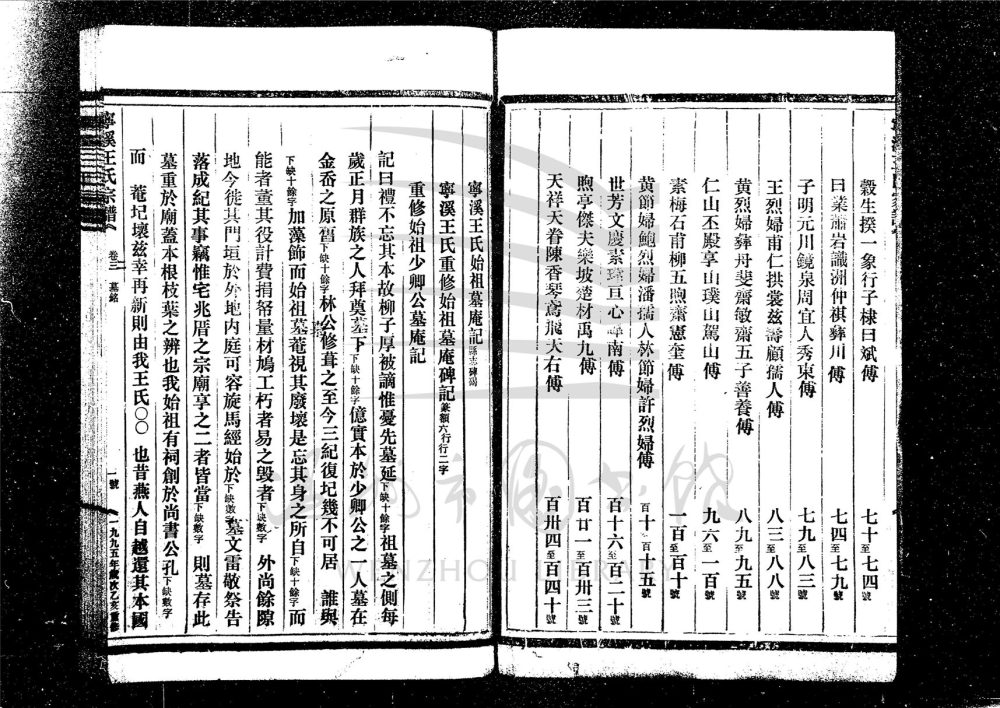 穀生揆一象行子棣曰斌傅 七十至七四號
曰業蕭岩識洲仲祺彝川傅 七四至七九號
子明元川鏡泉周宜人秀東傅 七九至八三號
王烈婦甫仁拱裳茲壽顧孺人傅 八三至八八號
黄烈婦彝舟斐齋敏齋五子善養傅 八九至九五號
仁山丕殿享山璞山駕山傅 九六至一百號
素梅石甫柳五煦蕭憲奎傅 一百至百十號
黄節婦鮑烈婦潘孺人林節婦許烈婦傅 百十至百十五號
世芳文慶素 亘心 南傅 百十六至百二十號
煦亭傑夫樂坡楚材禹九傅 百廿一至百卅三號
天祥天眷陳香琴鳶飛大右傅 百卅四至百四十號
寧溪王氏始祖墓庵記縣志碑碣
寧溪王氏重修始祖墓庵碑記篆額六行行二字
重修始祖少卿公墓庵記
記曰禮不忘其本故柳子厚被謫惟憂先墓延下缺十餘字祖墓之側每
歲正月群族之人拜奠墓下下缺十餘字億實本於少卿公之一人墓在
金岙之原舊下缺十餘字林公修葺之至今三紀復圮幾不可居 誰與
下缺十餘字加藻飾而始祖墓菴視其廢壞是忘其身之所自下缺十餘字而
能者董其役計費捐帑量材鳩工朽者易之毀者下缺數字 外尚餘隙
地今徙其門垣於外地内庭可容旋馬經始於下缺數字墓文雷敬祭告
落成紀其事竊惟宅兆厝之宗廟享之二者皆當下缺數字 則墓存此
墓重於廟蓋本根枝葉之辨也我始祖有祠創於尚書公孔下缺數字
而 菴圮壞茲幸再新則由我王氏○○ 也昔燕人自越還其本國
寧溪王氏宗譜 卷三 墓銘 一號 一九九五年歲次乙亥重修
WENZHOU LIBRARY